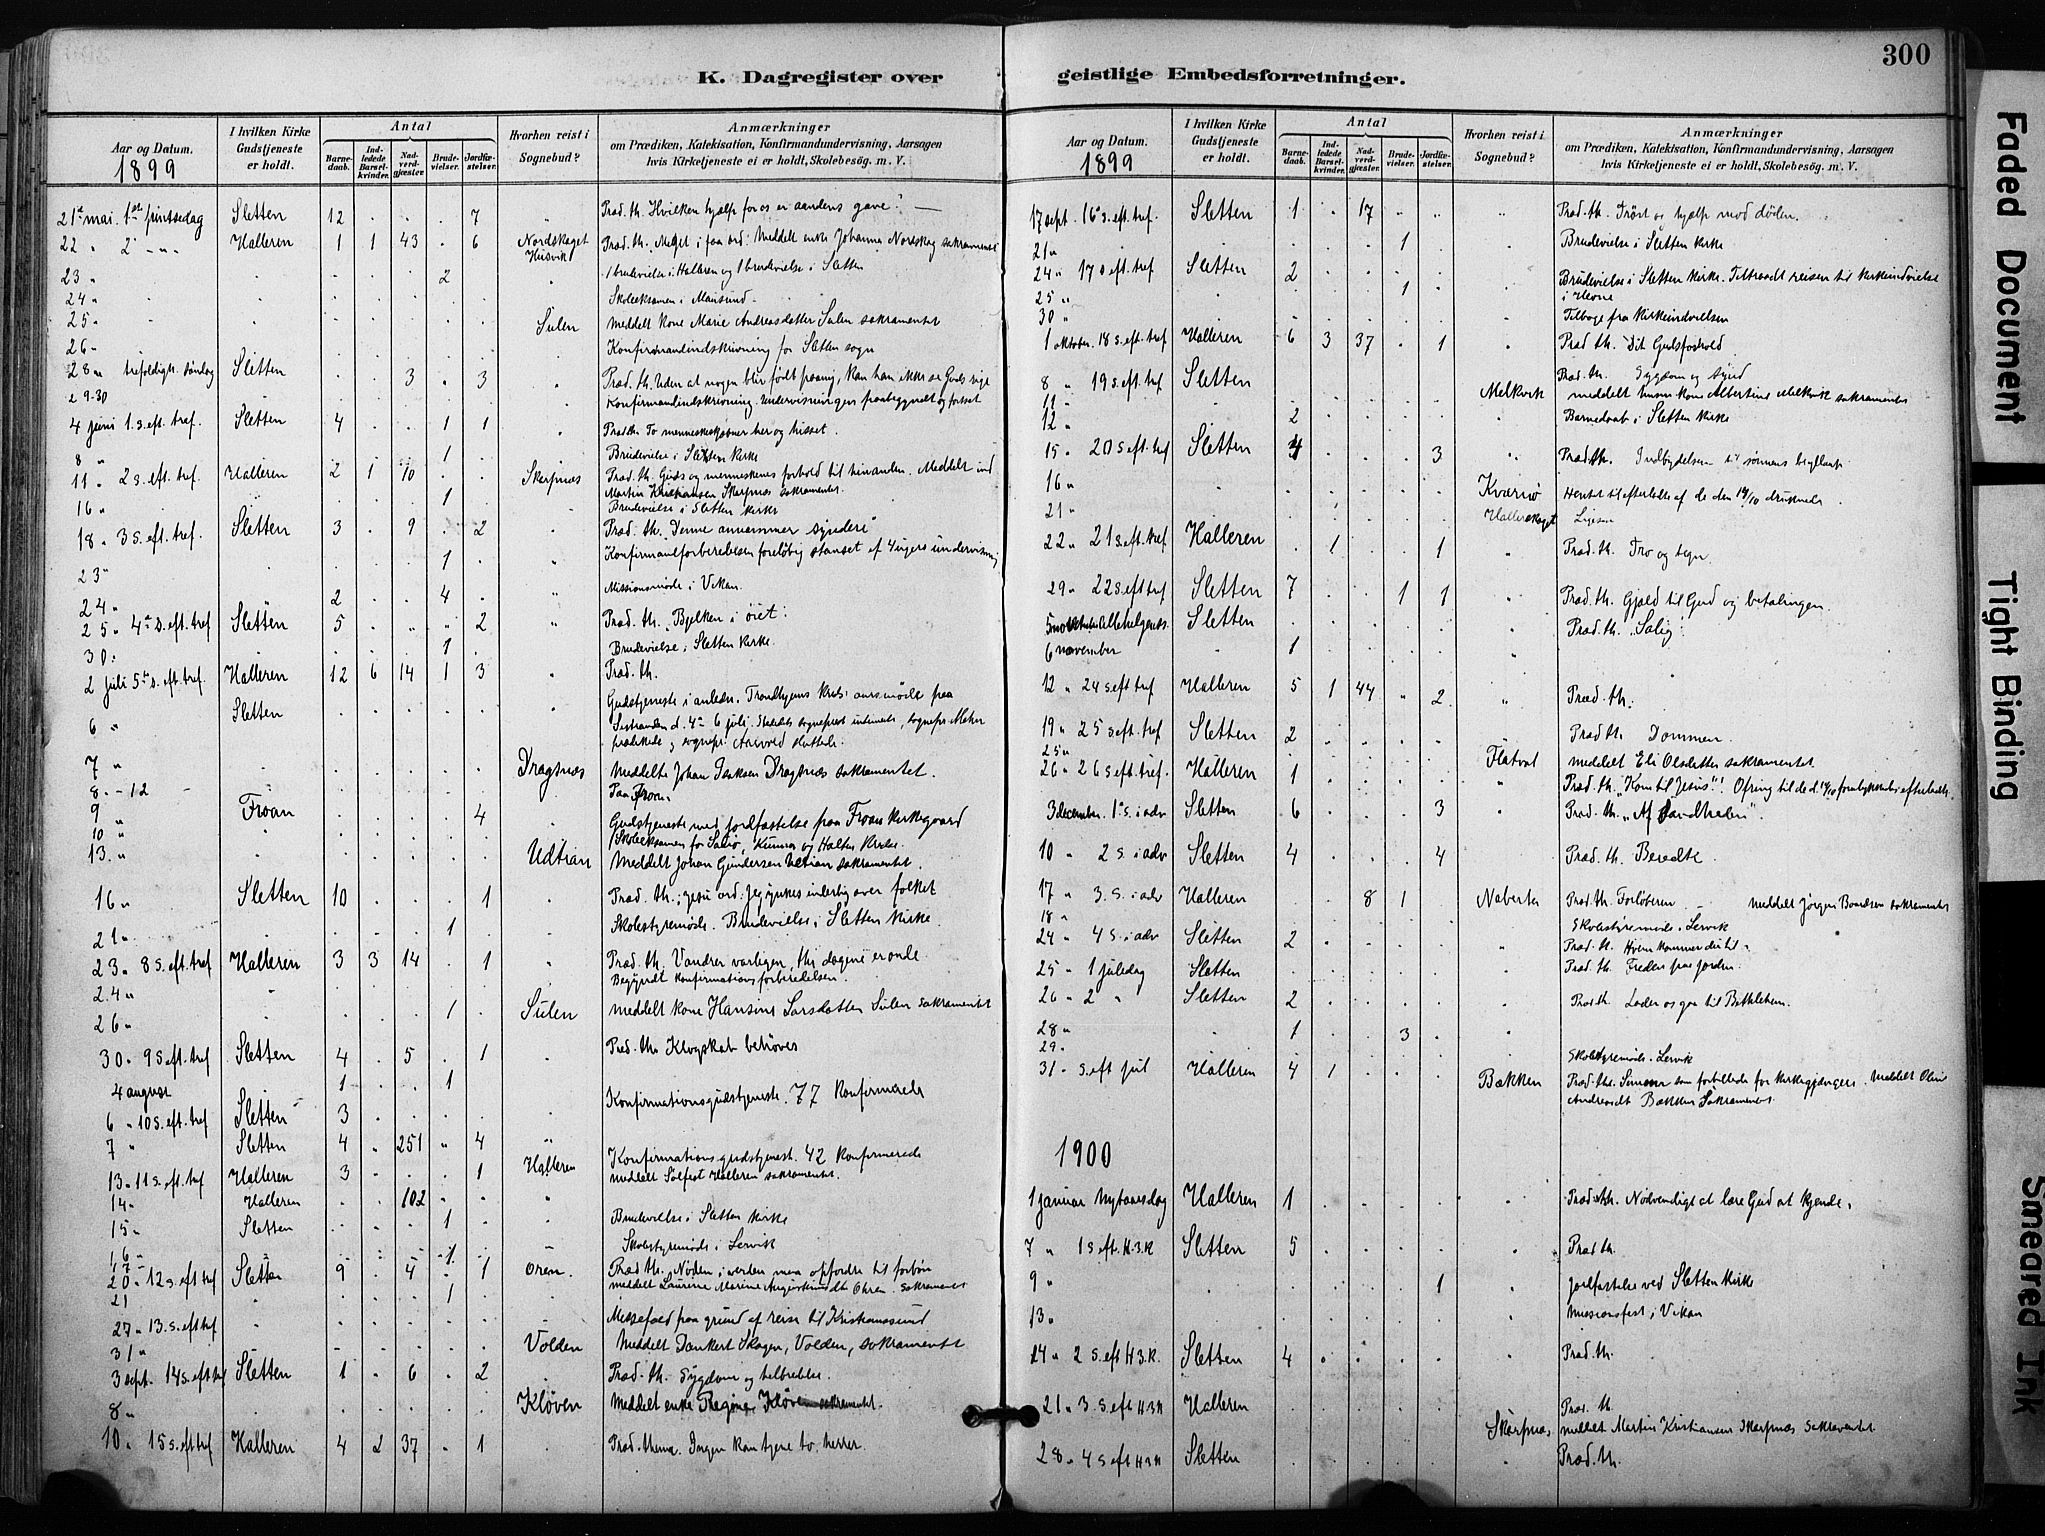 300
K. Dagregister over geistlige Embedsforretninger.
Aar og Datum.
1899
I hvilken Kirke Gudstjeneste er holdt.
Antal
Barnedaab.
Indledede Barselkvinder.
Nadverdgjæster.
Brudevielser.
Jordfæstelser.
Hvorhen reist i Sognebud?
Anmærkninger
om Prædiken, Katekisation, Konfirmandundervisning, Aarsagen
hvis Kirketjeneste ei er holdt, Skolebesög. m. V.
21st mai. 1st pintsedag Sletten 12 . . . 7 " Præd. th. Hvilken hjælp for os er aandens gave?
22 " 2 " " Halleren 1 1 43 . 6 Nordskaget Husvik Præd. th. Meget i faa ord. Meddelt enke Johanna Nordskag sakramentet
23 " . . . . 2 . " 1 brudevielse i Halleren og 1 brudevielse i Sletten
24 " Skoleeksamen i Mausund
25 " Sulen Meddelt kone Marie Andreasdatter Sulen sakramentet
26 " Konfirmandindskrivning for Sletten sogn
28 " trefoldigh. søndag Sletten . . 3 . 3 Præd. th. Uden at nogen blir født paany, kan han ikke se Guds rige
e 9-30 Konfirmandindskrivning. Undervisningen paabegyndt og fortsat
4 juni 1. s. eft. tref. Sletten 4 . . 1 1 Præd. th. To menneskeskjæbner her og hisset.
8 " 1 Brudevielse i Sletten kirke
11 " 2 s. eft. tref. Halleren 2 1 10 . . Skarpnes Præd. th. Guds og menneskenes forhold til hinanden. Meddelt ind
Martin Kristiansen Skarpnes sakramentet.
16 " 1 Brudevielse i Sletten kirke
18 " 3 s. eft. tref. Sletten 3 . 9 . 2 Præd. th. "Denne annammer syndere"
23 " 1 Konfirmantforberedelsen foreløbig stanset ef 4 ugers undervisning
24 " 2 . . 4 . Missionsmøde i Vikan.
25 " 4de s. eft. tref Sletten 5 . . . 2 Præd. th. "Bjelken i øiet".
30. 1 Brudevielse i Sletten kirke.
2 juli 5te s. eft. tref. Halleren 12 6 14 1 3 Præd. th.
6 " Sletten Gudstjeneste i anledn. Trondhjems kreds' aarsmøde paa
Sistranden d. 4de - 6 juli. sogneprest
prædikede og sognepr. sluttede.
7 " Dragsnes Meddelte Johan Isaksen Dragsnes sakramentet.
8. - 12 Paa Froan.
9 " Froan 4 Gudstjeneste med jordfæstelse paa Froans kirkegaard
10 " Skoleeksamen for Sauø, Kunna og Halten kredse.
13. " Udtian Meddelt Johan Gundersen Utian sakramentet.
16 " Sletten 10 . . . 1 Præd. th.; Jesu ord: Jeg ynkes inderlig over folket
21 " 1 Skolestyremøde. Brudevielse i Sletten kirke.
23 " 8 s. eft. tref Halleren 3 3 14 . 1 Præd. th. Vandrer varligen, thi dagene er onde.
24 " Begyndt konfirmationsforberedelsen.
26 " 1 Sulen Meddelt kone Hansine Larsdatter Sulen sakramentet
30 " 9 s eft. tref Sletten 4 . 5 . 1 Præd. th. Klogskab behøves
4 august 1 . . 1
6 " 10 s. eft. tref Sletten 3 Konfirmationsgudstjeneste. 77 Konfirmerede
7 " Sletten 4 . 251 " 4
13 " 11 s. eft. tref Halleren 3 . . . 1 Halleren Konfirmationsgudstjenest. 42 Konfirmerede
meddelt Halleren sakramentet.
14 " Halleren . . 102
15 " Sletten 1 Brudevielse i Sletten kirke
16 " Skolestyremøde i Lervik
17 " 1
20 " 12 s. eft tref Sletten 9 . 4 . 1 Oren. Præd. th. Nøden i verden maa opfordre til forbøn
21 1 meddelt Laurine Marine Ohren. sakramentet
27 " 13. s. eft tref Messefald paa grund af reise til Kristianssund
31 " Volden Meddelt Dankert Skagen, Volden, sakramentet
3 sept. 14 s. eft tref Sletten 1 . 6 . 2 Præd. th. Sygdom og helbredelse.
8 " Kløven Meddelt enke Regine Kløven sakramentet.
10 " 15 s. eft tref Halleren 4 2 37 . 1 Præd. thema. Ingen kan tjene to herrer.
Aar og Datum.
1899
I hvilken Kirke Gudstjeneste er holdt.
Antal
Barnedaab.
Indledede Barselkvinder.
Nadverdgjæster.
Brudevielser.
Jordfæstelser.
Hvorhen reist i Sognebud?
Anmærkninger
om Prædiken, Katekisation, Konfirmandundervisning, Aarsagen
hvis Kirketjeneste ei er holdt, Skolebesög. m. V.
17 sept. 16de s. eft. tref. Sletten 1 . 17 " " Præd. th. Trøst og hjælp mod døden.
21 " 1 Brudevielse i Sletten kirke
24 " 17 s eft. tref Sletten 2
25 " 1 Brudevielse i Sletten kirke. Tiltraadt reisen til kirkeindvielse
i Hevne
30 " Tilbage fra kirkeindvielsen
1 oktober. 18 s. eft. tref Halleren 6 3 37 . 1 Præd th. Dit Gudsforhold
8 " 19 s. eft. tref Sletten Præd. th. Sygdom og synd
11 " Melkvik meddelt kone Albertine Melkvik sakramentet
12 " 2 Barnedaab i Sletten kirke
15 " 20 s eft. tref Sletten 4 . . . 3 Præd. th. Indbydelsen til sønnens bryllup.
16 " Kværnø Hentet til efterladte af de den 14/10 druknede
21 " Hallerskaget Ligesaa
22 " 21 s. eft. tref Halleren . 1 . . 1 Præd. th. Tro og tegn.
29 " 22 s. eft tref Sletten 7 . . 1 1 Præd. th. Gjæld til Gud og betalingen.
5 Allehelgensd. Sletten Præd. th. "Salig".
6 november 1
12 " 24 s eft tref Halleren 5 1 44 " 2 Præd. th.
19 " 25 s eft. tref Sletten 2 Præd th. Dommen.
25 " Flatval meddelt Eli Olsdatter sakramentet
26 " 26 s eft. tref. Halleren 1 Præd. th. "Kom til Jesus"! Ofring til de d. 14/10 forulykkedes efterladte.
3 december. 1ste s. i adv Sletten 6 . . . 3 Præd. th. "Af Sandheden".
10 " 2 s. i adv Sletten 4 . . . 4 Præd. th. Beredte.
17 " 3. s. i adv Halleren . . 8 1 Nabeita Præd. th. Forløberen. Meddelt Jørgen sakramentet
18 " Skolestyremøde i Lervik
24 " 4 s. i adv Sletten 2 Præd. th. Hvem kommer du til.
25 " 1 juledag Sletten Præd. th. Freden paa jorden.
26 " 2 " Sletten 2 Præd th. Lader os gaa til Bethlehem.
28 " 1 . . 3
29 " Skolestyremøde i Lervik
31 " s. eft jul Halleren 4 1 Bakken Præd. th. Simeon som forbillede for kirkegjængere. Meddelt Oline
Andreasdt Bakken Sakramentet.
1900
1 januar Nytaarsdag Halleren 1 Præd. th. Nødvendigt at lære Gud at kjende.
7 " 1 s eft. H.3.K Sletten 5 Præd th.
9 " 1 Jordfæstelse ved Sletten kirke
13 " Missionsfest i Vikan
14 " 2 s. eft H 3. K. Sletten 4 Præd. th.
21 " 3. s. eft H 3 K Halleren Præd. th.
Skarpnes, meddelt Martin Kristiansen Skarpnes Sakramentet
28 " 4 s eft H 3 K Sletten Præd. th.
Faded Document
Tight Binding
Smeared Ink